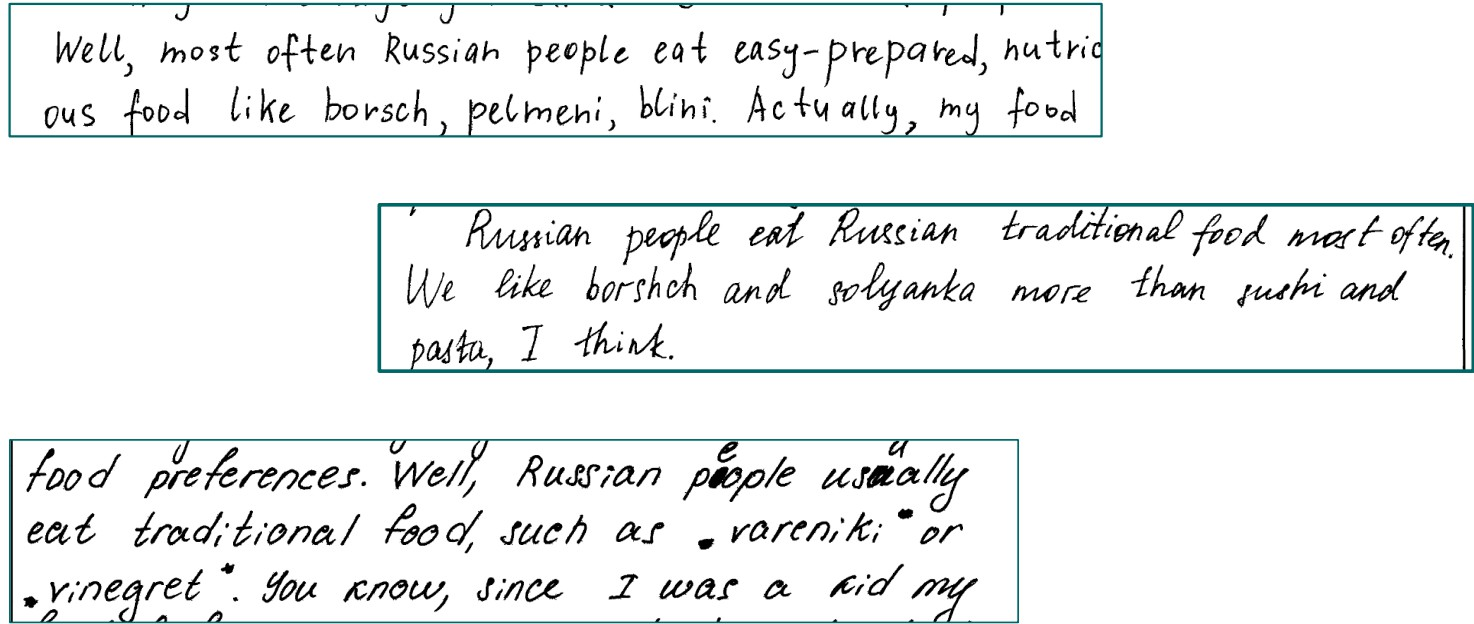 Well, most often Russian people eat easy-prepared, nutric
ous food like borsch, pelmeni, blini. Actually, my food
Russian people eat Russian traditional food most often.
We like borshch and solyanka more than sushi and
pasta, I think.
food preferences. Well, Russian people usually
eat traditional food, such as „vareniki“ or
„vinegret“. You know, since I was a kid my